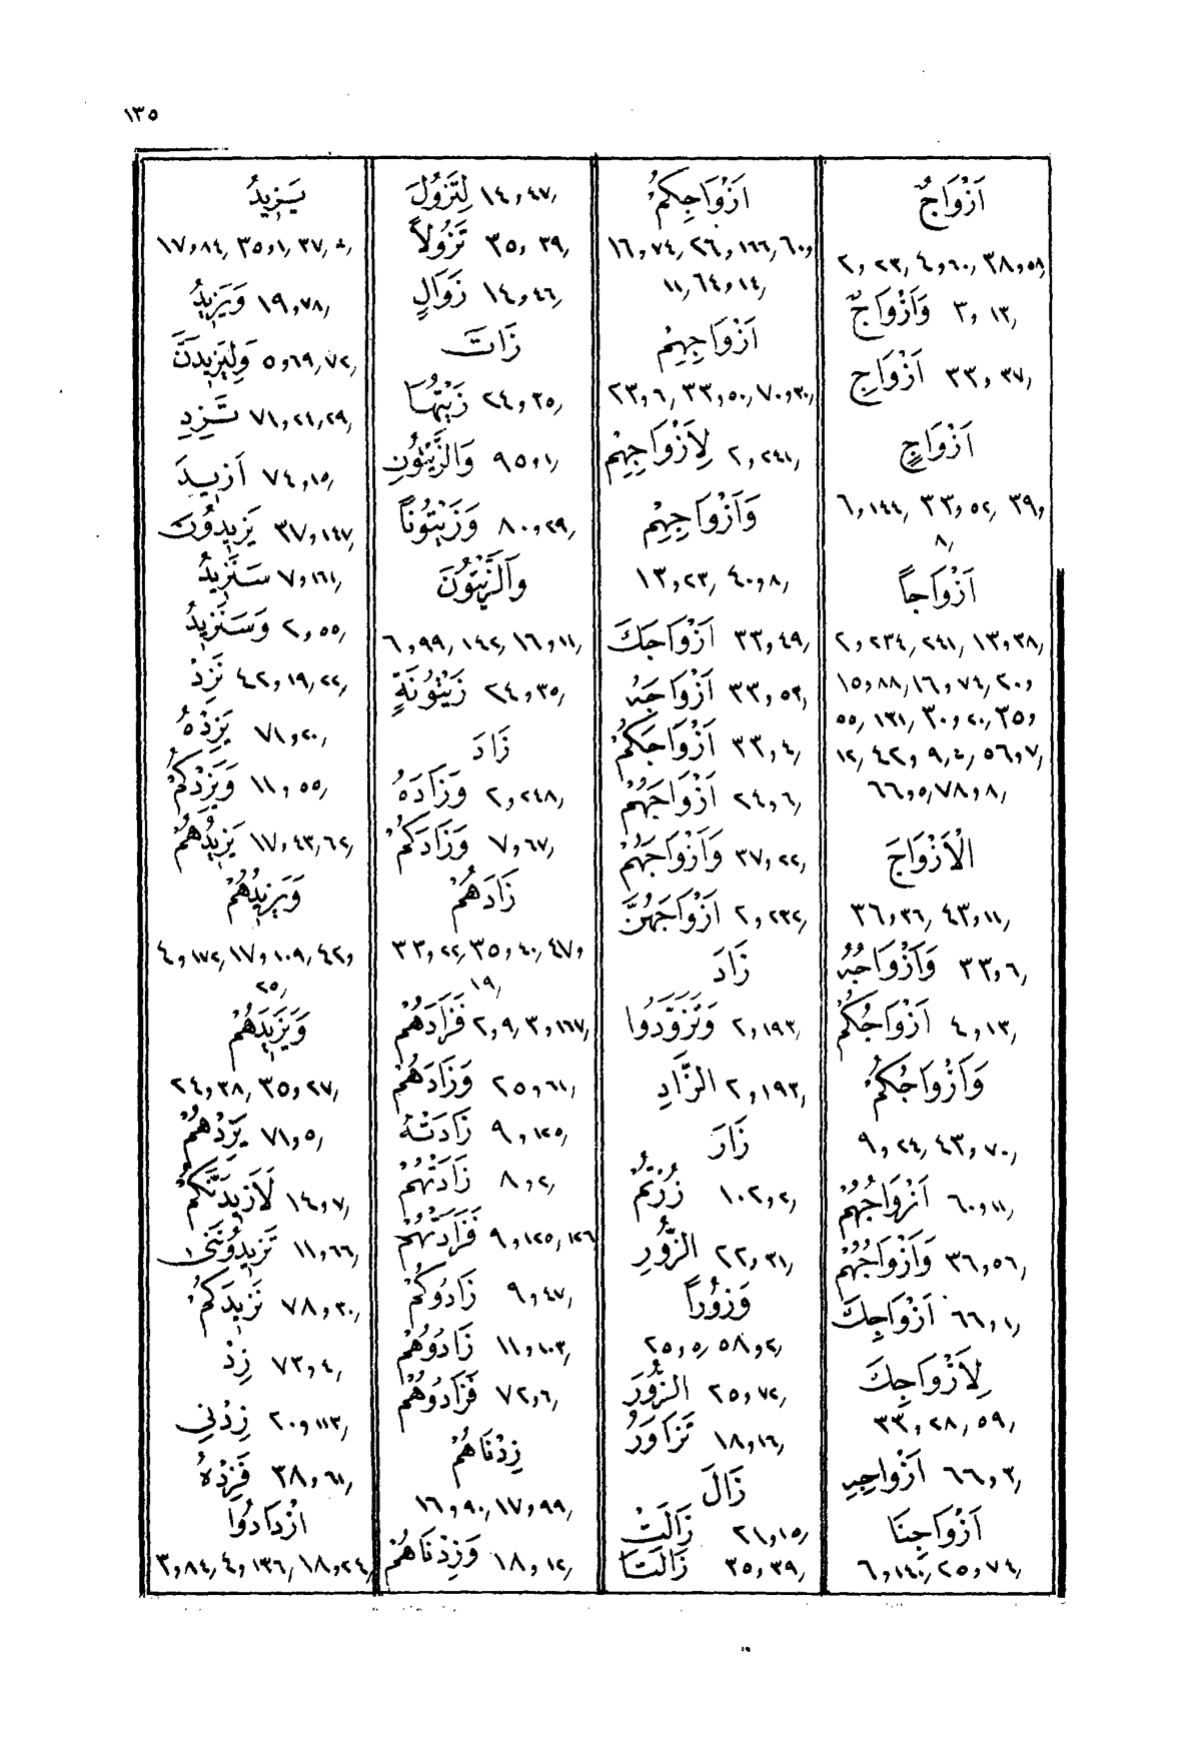 ١٣٥
اَزْوَاجٌ
٢,٢٣, ٤,٦٠, ٣٨,٥٨,
وَاَزْوَاجٌ ٣, ١٣,
اَزْوَاجِ ٣٣,٣٧,
اَزْوَاجٍ
٦,١٤٤, ٣٣,٥٢, ٣٩,
٨,
اَزْوَاجاً
٢,٢٣٤, ٢٤١, ١٣,٣٨,
١٥,٨٨, ١٦,٧٤, ٢٠,
٥٥, ١٣١, ٣٠,٢٠, ٣٥,
١٢, ٤٢, ٩,٤, ٥٦,٧,
٦٦,٥, ٧٨,٨,
الْاَزْوَاجَ
٣٦,٣٦, ٤٣,١١,
وَاَزْوَاجُهُ ٣٣,٦,
اَزْوَاجُكُمْ ٤,١٣,
وَاَزْوَاجُكُمْ
٩,٢٤, ٤٣,٧٠,
اَزْوَاجُهُمْ ٦٠,١١,
وَاَزْوَاجُهُمْ ٣٦,٥٦,
اَزْوَاجِكَ ٦٦,١,
لِاَزْوَاجِكَ
٣٣,٢٨, ٥٩,
اَزْوَاجِهِ ٦٦,٣,
اَزْوَاجِنَا
٦,١٤٠, ٢٥,٧٤,
اَزْوَاجِكُمْ
١٦,٧٤, ٢٦,١٦٦, ٦٠,
١١, ٦٤,١٤,
اَزْوَاجِهِمْ
٢٣,٦, ٣٣,٥٠, ٧٠,٣٠,
لِاَزْوَاجِهِمْ ٢,٢٤١,
وَاَزْوَاجِهِمْ
١٣,٢٣, ٤٠,٨,
اَزْوَاجَكَ ٣٣,٤٩,
اَزْوَاجَهُ ٣٣,٥٣,
اَزْوَاجَكُمُ ٣٣,٤,
اَزْوَاجَهُمْ ٢٤,٦,
وَاَزْوَاجَهُمْ ٣٧,٢٢,
اَزْوَاجَهُنَّ ٢,٢٣٢,
زَادَ
وَتَزَوَّدُوا ٢,١٩٣,
الزَّادِ ٢,١٩٣,
زَارَ
زُرْتُمُ ١٠٢,٢,
الزُّورِ ٢٢,٣١,
وَزُوراً
٢٥,٥, ٥٨,٢,
الزُّورَ ٢٥,٧٢,
تَزَاوَرُ ١٨,١٦,
زَالَ
زَالَتْ ٢١,١٥,
زَالَتَا ٣٥,٣٩,
لِتَزُولَ ١٤,٤٧,
تَزُولاً ٣٥, ٣٩,
زَوَالٍ ١٤,٤٦,
زَاتَ
زَيْتُهَا ٢٤,٣٥,
وَالزَّيْتُونِ ٩٥,١,
وَزَيْتُوناً ٨٠,٢٩,
وَالزَّيْتُونَ
٦,٩٩, ١٤٢, ١٦,١١,
زَيْتُونَةٍ ٢٤,٣٥,
زَادَ
وَزَادَهُ ٢,٢٤٨,
وَزَادَكُمْ ٧,٦٧,
زَادَهُمْ
٣٣,٢٢, ٣٥,٤٠, ٤٧,
١٩,
فَزَادَهُمْ ٢,٩, ٣,١٦٧,
وَزَادَهُمْ ٢٥,٦١,
زَادَتْهُ ٩,١٢٥,
زَادَتْهُمْ ٨,٢,
فَزَادَتْهُمْ ٩,١٢٥, ١٢٦
زَادُوكُمْ ٩,٤٧,
زَادُوهُمْ ١١,١٠٣,
فَزَادُوهُمْ ٧٢,٦,
زِدْنَاهُمْ
١٦,٩٠, ١٧,٩٩,
وَزِدْنَاهُمْ ١٨,١٢,
يَزِيدُ
١٧,٨٤, ٣٥,١, ٣٧,٨,
وَيَزِيدُ ١٩,٧٨,
وَلِيَزِيدَنَّ ٥,٦٩, ٧٢,
تَزِدِ ٧١,٢٤,٢٩,
اَزِيدَ ٧٤,١٥,
يَزِيدُونَ ٣٧,١٤٧,
سَنَزِيدُ ٧,١٦١,
وَسَنَزِيدُ ٢,٥٥,
نَزِدْ ٤٢,١٩,٢٢,
يَزِدْهُ ٧١,٢٠,
وَيَزِدْكُمْ ١١,٥٥,
يَزِيدُهُمْ ١٧,٤٣,٦٢,
وَيَزِيدُهُمْ
٤,١٧٢, ١٧,١٠٩, ٤٢,
٢٥,
وَيَزِيدَهُمْ
٢٤,٣٨, ٣٥,٢٧,
يَزِدْهُمْ ٧١,٥,
لَاَزِيدَنَّكُمْ ١٤,٧,
تَزِيدُونَنِى ١١,٦٦,
نَزِيدَكُمْ ٧٨,٣٠,
زِدْ ٧٣,٤,
زِدْنِي ٢٠,١١٣,
فَزِدْهُ ٣٨,٦١,
ازْدَادُوا
٣,٨٤, ٤,١٣٦, ١٨,٢٤,